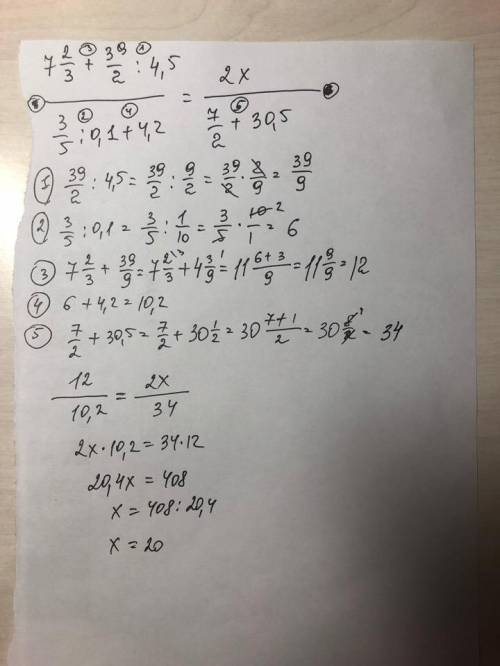 7 2/3 ③ + 39/2 ① : 4,5 = 2x
3/5 ② : 0,1 ④ + 4,2   7/2 ⑤ + 30,5
① 39/2 : 4,5 = 39/2 : 9/2 = 39/2 · 2/9 = 39/9
② 3/5 : 0,1 = 3/5 : 1/10 = 3/5 · 10/1 ² = 6
③ 7 2/3 + 39/9 = 7 2/3 ³ + 4 3/9 ¹ = 11 6+3/9 = 11 9/9 = 12
④ 6 + 4,2 = 10,2
⑤ 7/2 + 30,5 = 7/2 + 30 1/2 = 30 7+1/2 = 30 8/2 = 34
12/10,2 = 2x/34
2x · 10,2 = 34 · 12
20,4x = 408
x = 408 : 20,4
x = 20